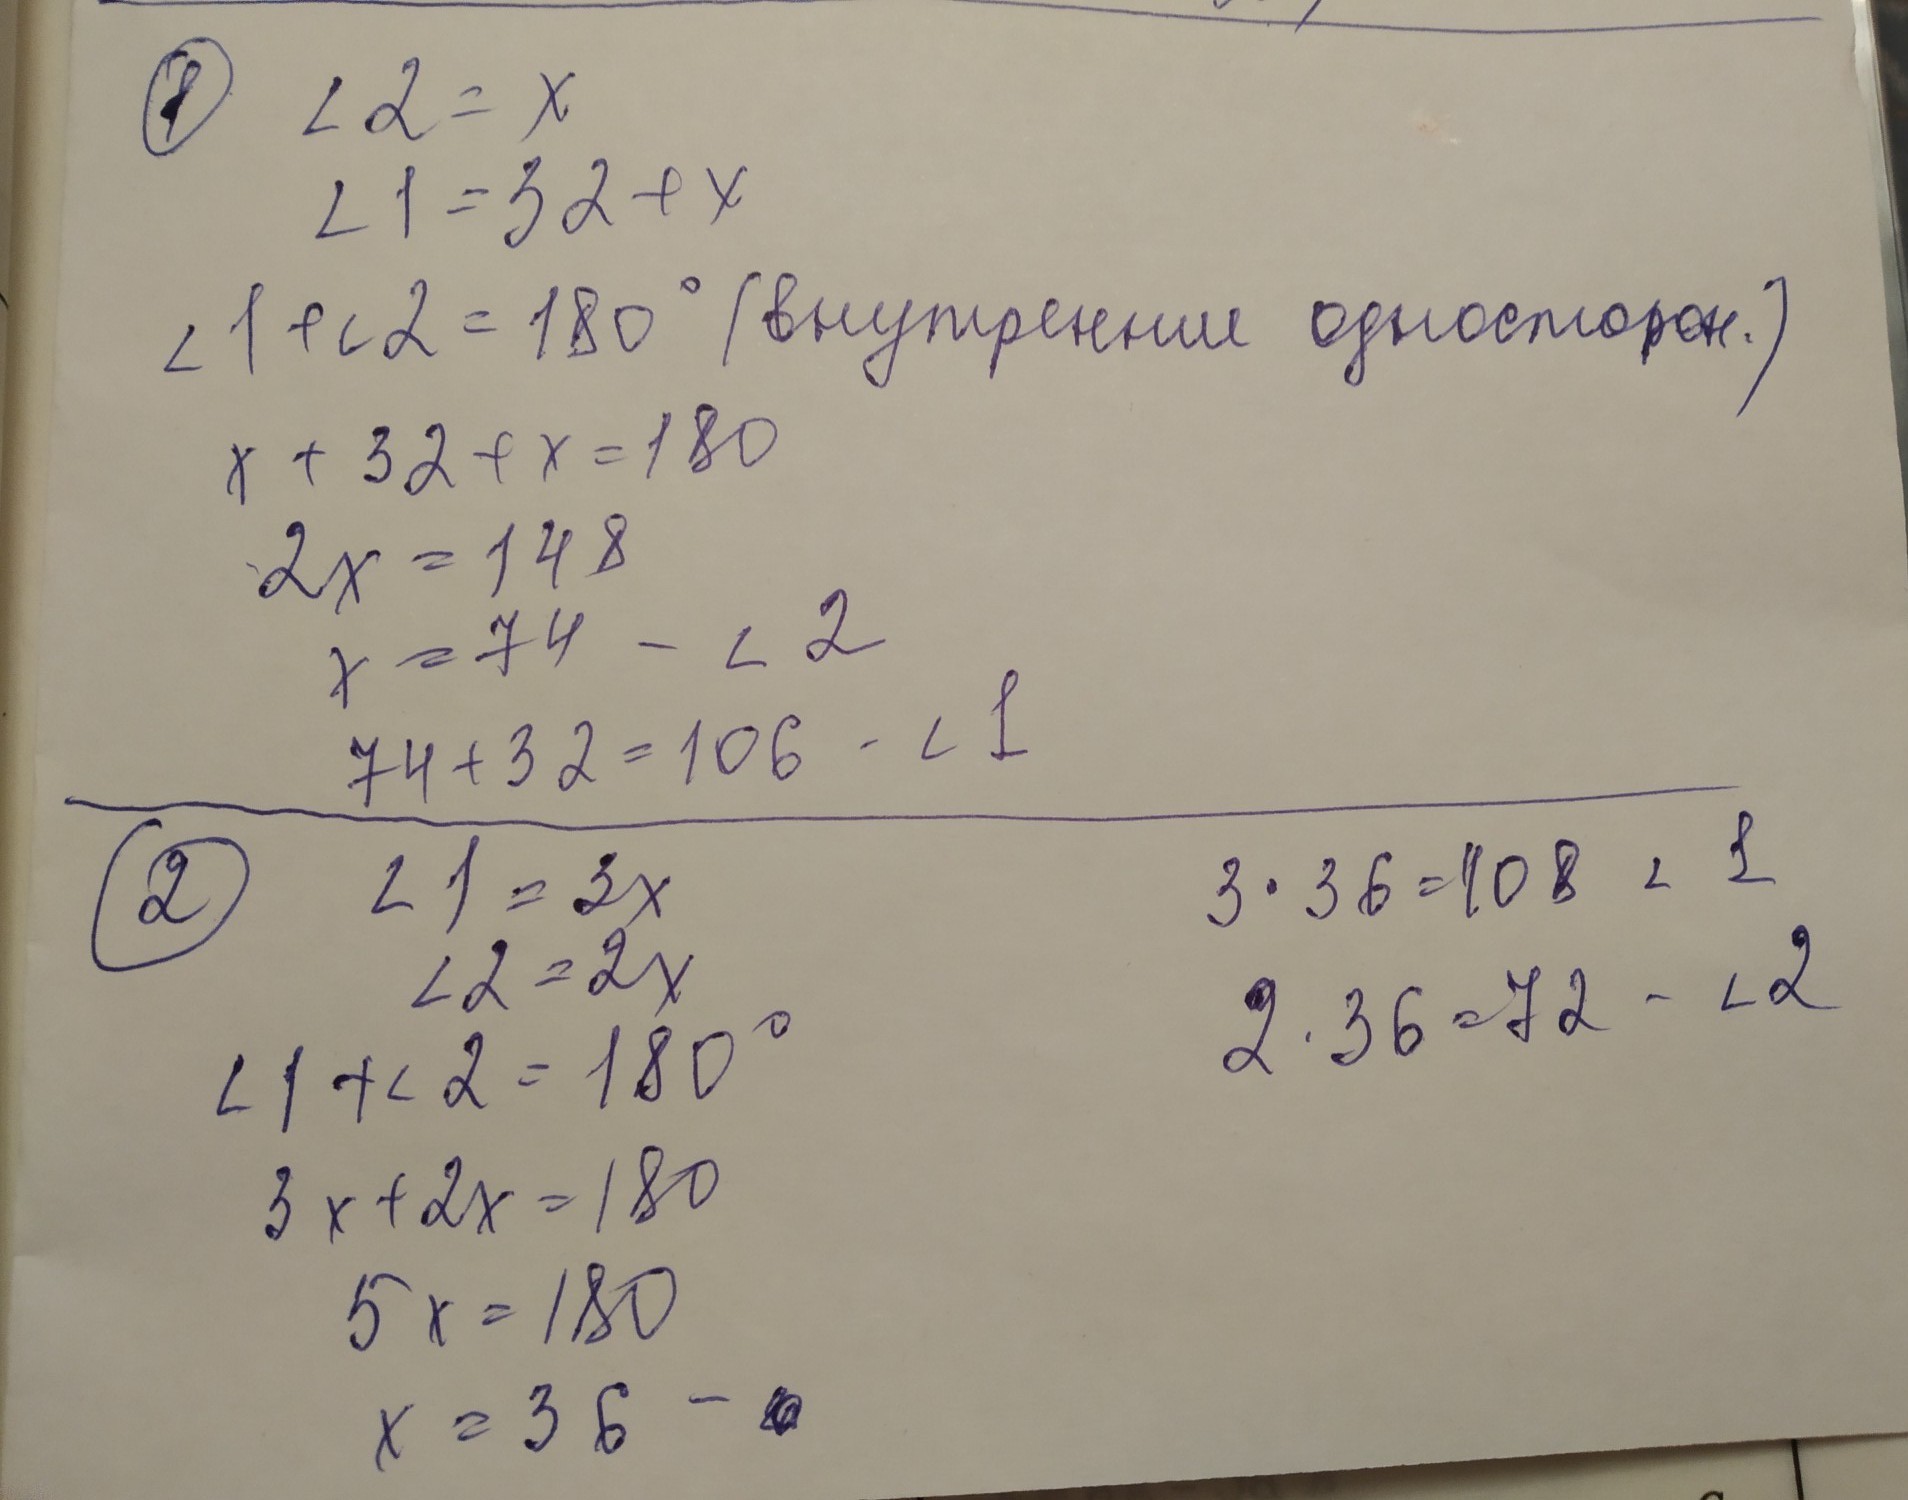 1 ∠2 = x
∠1 = 32 + x
∠1 + ∠2 = 180° (внутренние односторон.)
x + 32 + x = 180
2x = 148
x = 74 - ∠2
74 + 32 = 106 - ∠1
2 ∠1 = 3x
∠2 = 2x
∠1 + ∠2 = 180°
3x + 2x = 180
5x = 180
x = 36 -
3 · 36 = 108 ∠1
2 · 36 = 72 - ∠2